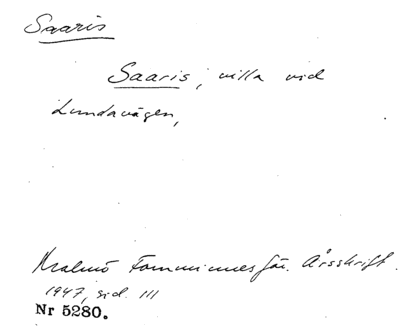 Saaris
Saaris, villa vid
Lundavägen,
Malmö Fornminnesför. Årsskrift.
1947, sid. 111
Nr 5280.